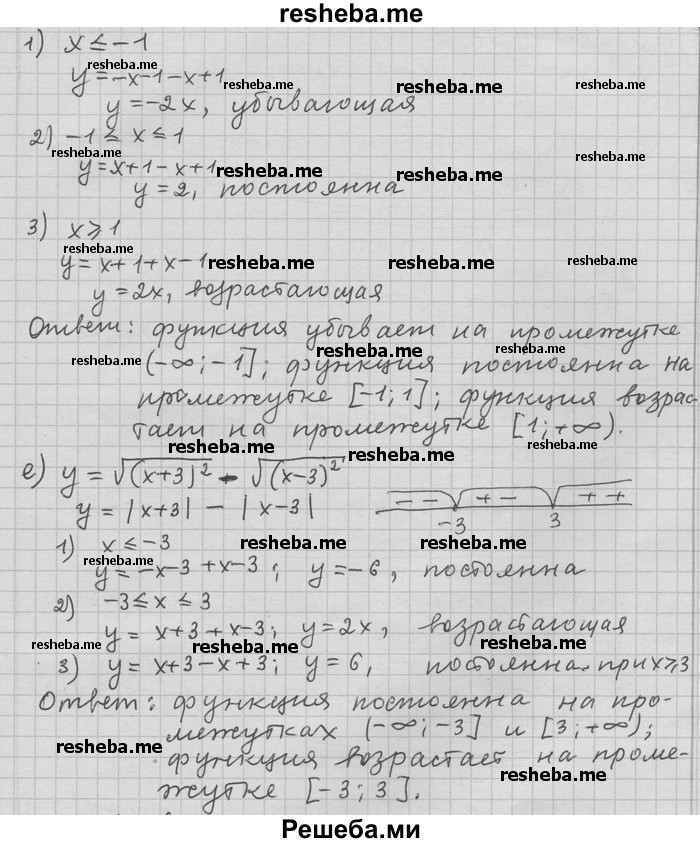 resheba.me
1) x ≤ -1
resheba.me
y = -x-1-x+1 resheba.me resheba.me resheba.me
y = -2x, убывающая
2) -1 ≤ x ≤ 1
resheba.me resheba.me
y = x+1-x+1 resheba.me resheba.me resheba.me
y = 2, постоянна
3) x ≥ 1
resheba.me
y = x+1+x-1 resheba.me resheba.me resheba.me
y = 2x, возрастающая
Ответ: функция убывает на промежутке
resheba.me resheba.me resheba.me
(-∞; -1]; функция постоянна на
промежутке [-1; 1]; функция возрас-
тает на промежутке [1; +∞).
resheba.me resheba.me resheba.me
е) y = √(x+3)² - √(x-3)²
y = |x+3| - |x-3| - - + - + +
-3 3
1) x ≤ -3 resheba.me resheba.me
resheba.me
y = -x-3 + x-3; y = -6, постоянна
2) -3 ≤ x ≤ 3
y = x+3+x-3; y = 2x, возрастающая
resheba.me resheba.me resheba.me
3) y = x+3-x+3; y = 6, постоянна при x ≥ 3
Ответ: функция постоянна на про-
межутках (-∞; -3] и [3; +∞);
resheba.me resheba.me resheba.me
функция возрастает на проме-
жутке [-3; 3].
Решеба.ми